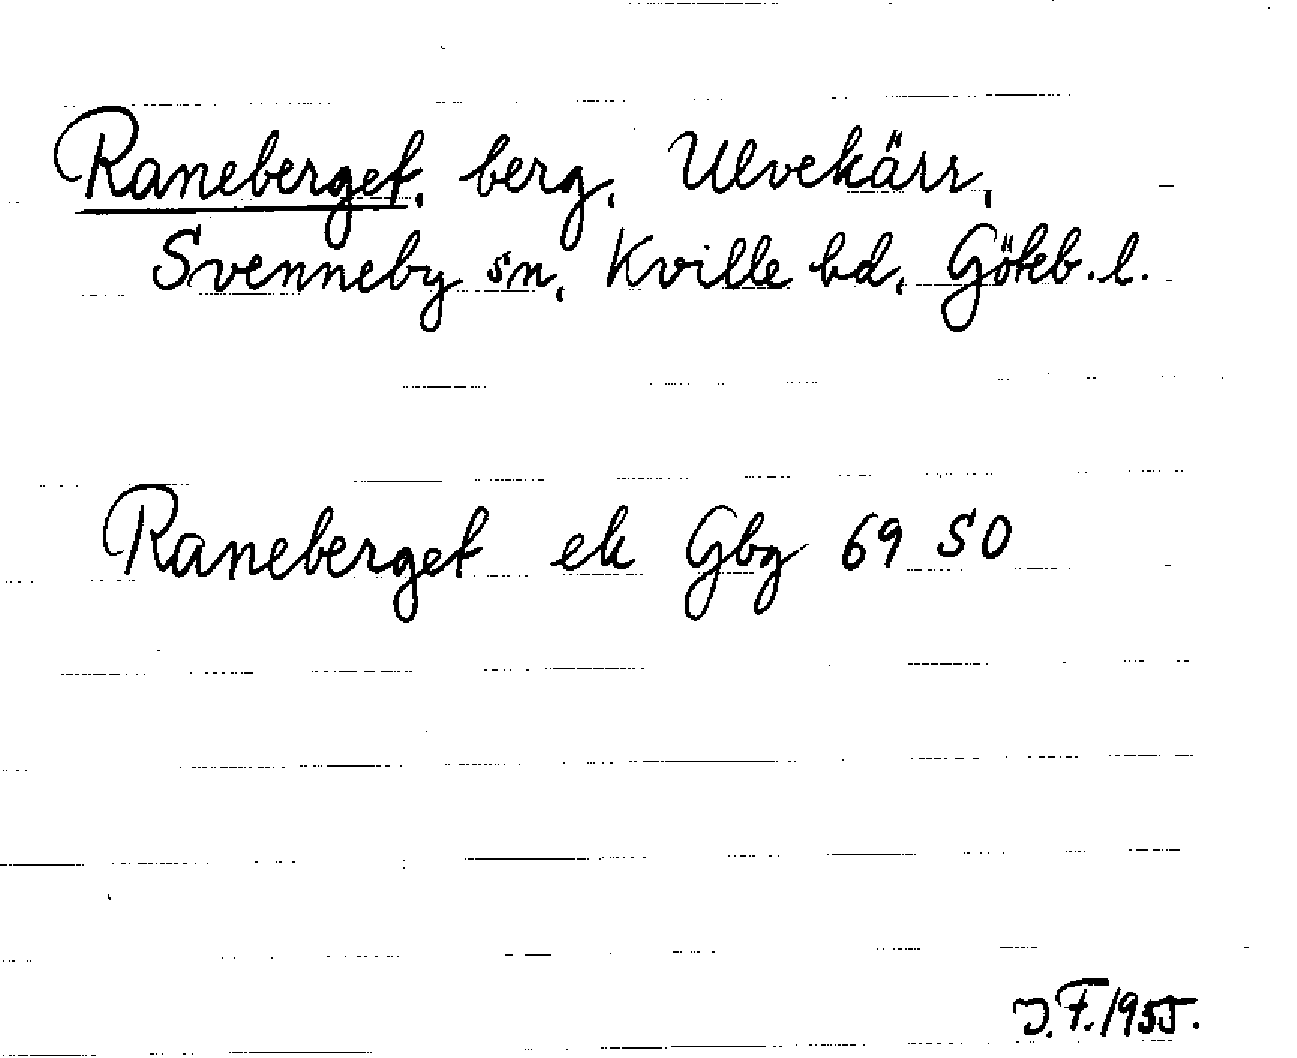 Raneberget, berg, Ulvekärr,
Svenneby sn, Kville hd, Göteb. l.
Raneberget ek Gbg 69 SO
J.F. 1955.